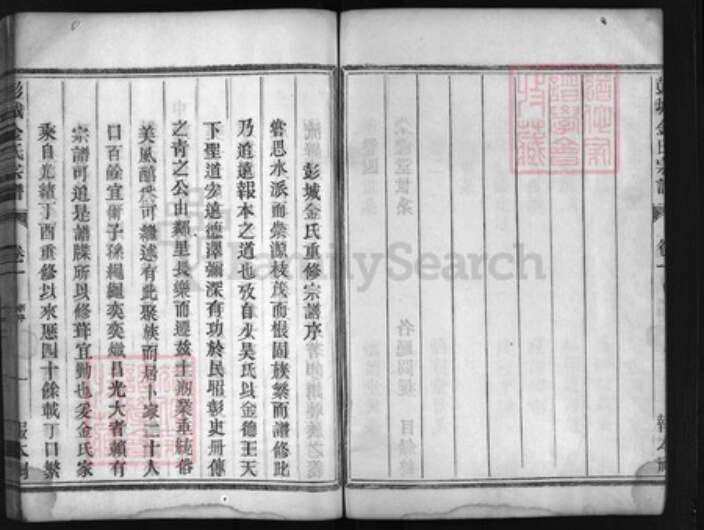 彭城金氏宗譜
卷一
報本祠
彭城金氏重修宗譜序
嘗思水派而縈源枝茂而根固族繁而譜修此
乃追遠報本之道也自少昊氏以金德王天
下聖道安遠德澤彌深有功於民昭彰史冊傳
之青之公由鄰里長樂而遷茲土剏業垂統俗
美風醇可繼述有此聚族而居卜家二十人
口百餘宜衍子孫繩繩奕奕熾昌光大者賴有
宗譜可追是譜牒所以修葺宜勤也爰金氏家
乘自光緒丁酉重修以來歷四十餘載丁口繁
彭城金氏宗譜
卷一
報本祠
FamilySearch